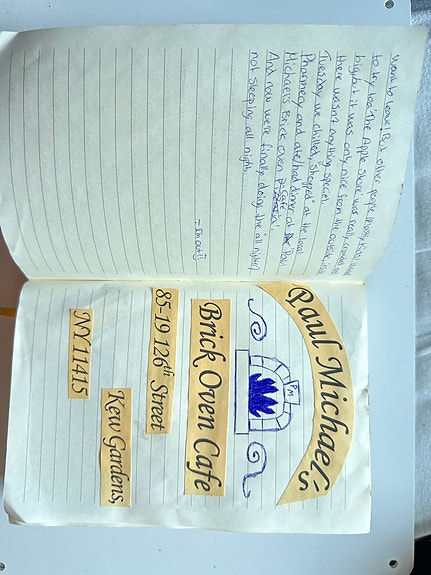 want to leave! But other people
to try too. The Apple Store was really crowded
big, but it was only nice from the outside,
there wasn't anything special.
Tuesday we chilled, "shopped" at the local
Pharmacy and ate/had dinner at Paul
Michael's Brick oven Cafe
And now were finally doing the "all nighter,
not sleeping all night.
Paul Michael's
Pm
Brick Oven Cafe
85-19 126th Street
Kew Gardens,
NY 11415